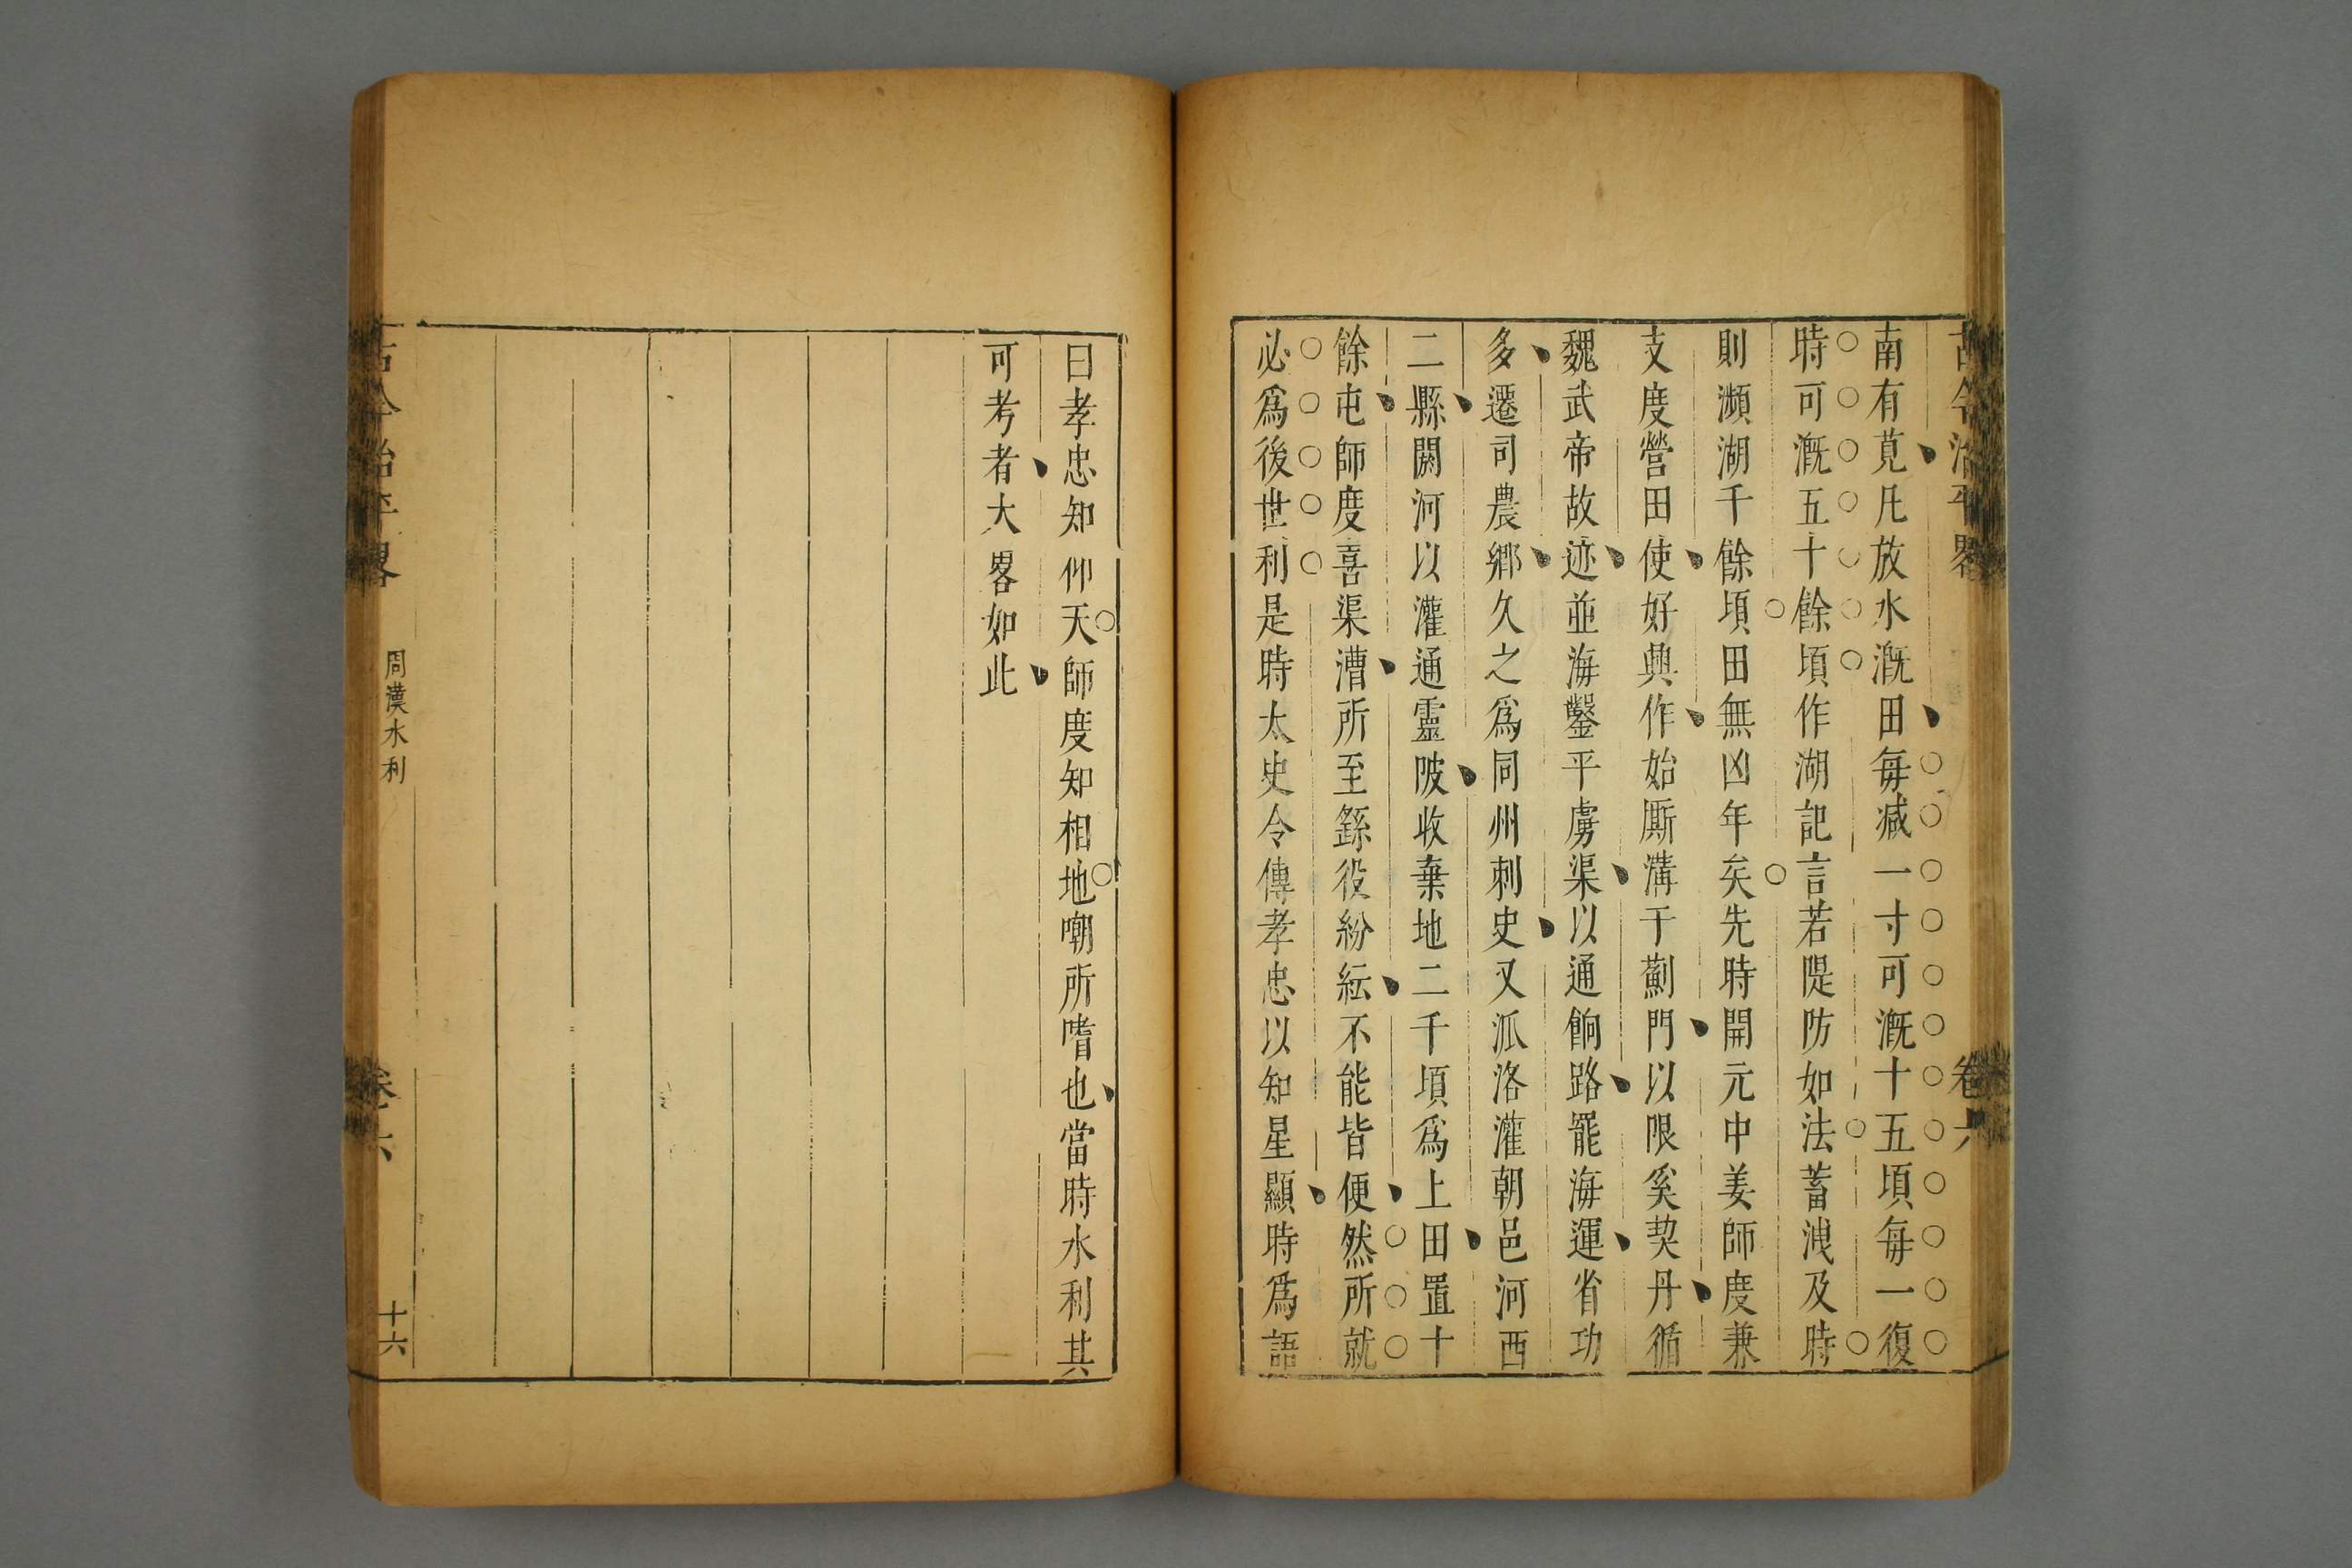 古今治平畧
卷六
南有莧凡放水漑田每减一寸可漑十五頃每一復
時可漑五十餘頃作湖記言若隄防如法蓄洩及時
則瀕湖千餘頃田無凶年矣先時開元中姜師度兼
支度營田使好興作始厮溝于薊門以限奚契丹循
魏武帝故迹並海鑿平虜渠以通餉路罷海運省功
多遷司農鄉久之爲同州刺史又泒洛灌朝邑河西
二縣閼河以灌通靈陂收棄地二千頃爲上田置十
餘屯師度喜渠漕所至繇役紛紜不能皆便然所就
必爲後世利是時太史令傳孝忠以知星顯時爲語
曰孝忠知仰天師度知相地嘲所嗜也當時水利其
可考者大畧如此
古今治平畧
周漢水利
卷六
十六